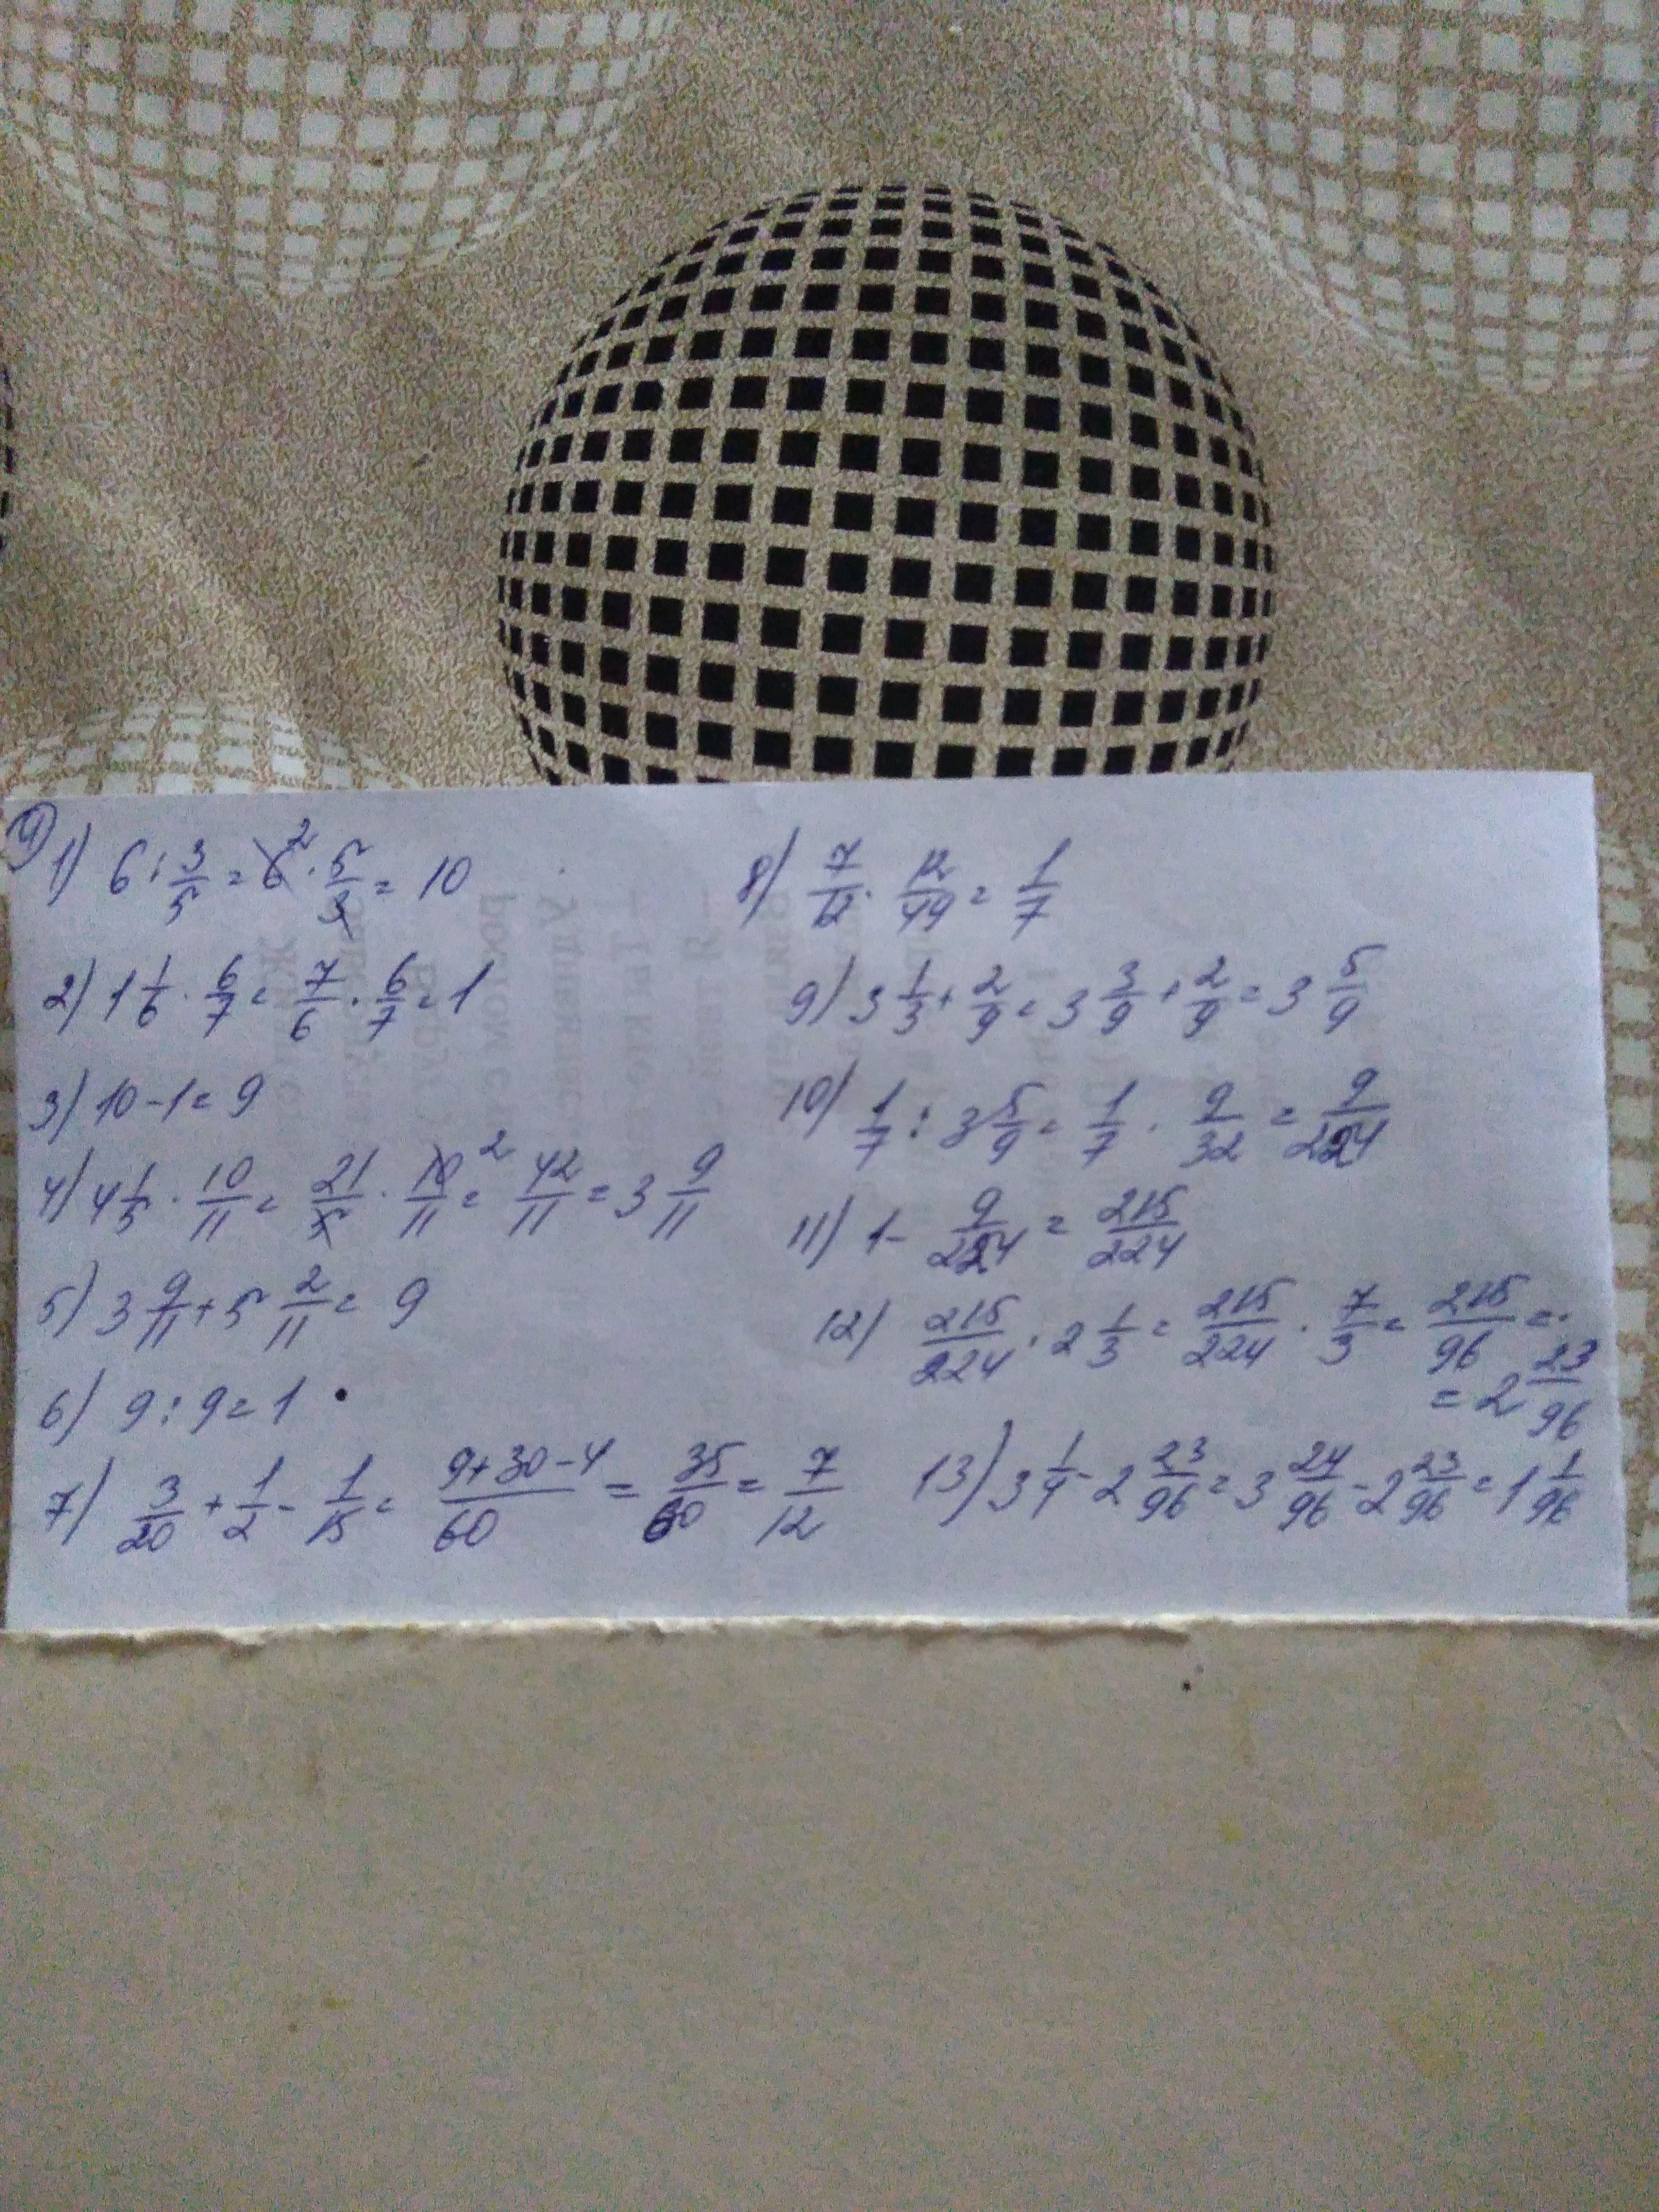 9) 1) 6 : 3/5 = 6² · 5/3 = 10
2) 1 1/6 · 6/7 = 7/6 · 6/7 = 1
3) 10 - 1 = 9
4) 4 1/5 · 10/11 = 21/5 · 10²/11 = 42/11 = 3 9/11
5) 3 9/11 + 5 2/11 = 9
6) 9 : 9 = 1
7) 3/20 + 1/2 - 1/15 = (9+30-4)/60 = 35/60 = 7/12
8) 7/12 · 12/49 = 1/7
9) 3 1/3 + 2/9 = 3 3/9 + 2/9 = 3 5/9
10) 1/7 : 3 5/9 = 1/7 · 9/32 = 9/224
11) 1 - 9/224 = 215/224
12) 215/224 · 2 1/3 = 215/224 · 7/3 = 215/96 =
= 2 23/96
13) 3 1/4 - 2 23/96 = 3 24/96 - 2 23/96 = 1 1/96